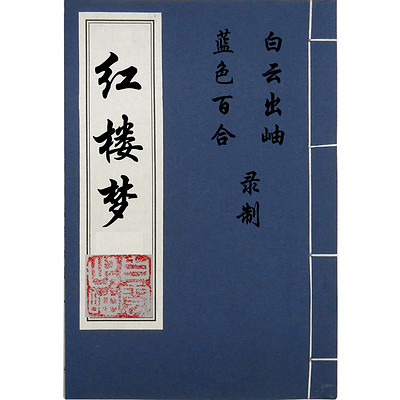 红楼梦
白云出岫
蓝色百合
录制